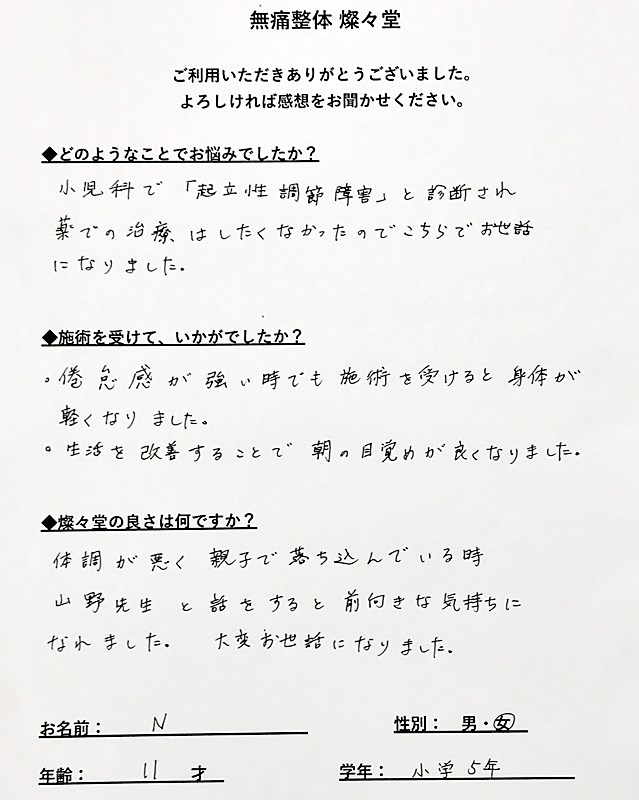 無痛整体 燦々堂
ご利用いただきありがとうございました。
よろしければ感想をお聞かせください。
◆どのようなことでお悩みでしたか？
小児科で「起立性調節障害」と診断され
薬での治療はしたくなかったのでこちらでお世話
になりました。
◆施術を受けて、いかがでしたか？
。倦怠感が強い時でも施術を受けると身体が
軽くなりました。
。生活を改善することで朝の目覚めが良くなりました。
◆燦々堂の良さは何ですか？
体調が悪く親子で落ち込んでいる時
山野先生と話をすると前向きな気持ちに
なれました。 大変お世話になりました。
お名前： N 性別： 男・女
年齢： 11 才 学年： 小学5年